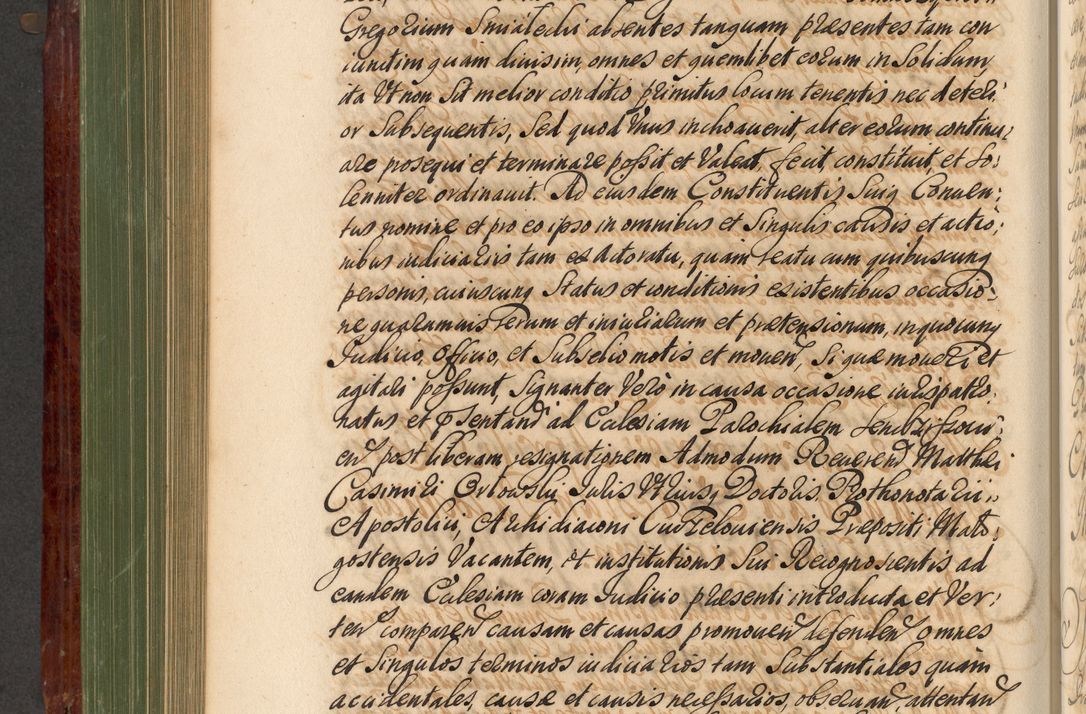 Gregorium Smialecki absentes tanquam præsentes tam con
iunctim quam diuisim, omnes et quemlibet eorum in Solidum
ita Vt non Sit melior conditio primitus locum tenentis nec deteri:
or Subsequentis, Sed quod Vnus inchoauerit, alter eorum continu:
are prosequi et terminare possit et Valeat, fecit, constituit, et So:
lenniter ordinauit. Ad eiusdem Constituentis Suiq Conuen:
tus nomine et pro eo ipso in omnibus et Singulis causis et actio:
nibus iudiciariis tam ex Actoratu, quam reatu cum quibuscunq
personis, cuiuscunq Status et conditionis existentibus occasio:
ne quarumuis rerum et iniuriarum et prætensionum, in quocunq
Iudicio, Officio, et Subselio motis et mouen, Si quæ moueri et
agitari possunt, Signanter Verò in causa occasione iurispatro:
natus et psentand ad Ecclesiam Parochialem
en post liberam resignationem Admodum Reuerend Matthæi
Casimiri Orlowski Iuris Vtriusq Doctoris, Prothonotarii
Apostolici, Archidiaconi Præpositi Mało:
gostensis Vacantem, et institutionis Sui Recognoscentis ad
eandem Ecclesiam coram Iudicio præsenti introducta et Ver:
ten comparen causam et causas promouen defenden omnes
et Singulos terminos iudiciarios tam Substantiales quàm
accidentales, causæ et causis necessarios, obseruan, attentan